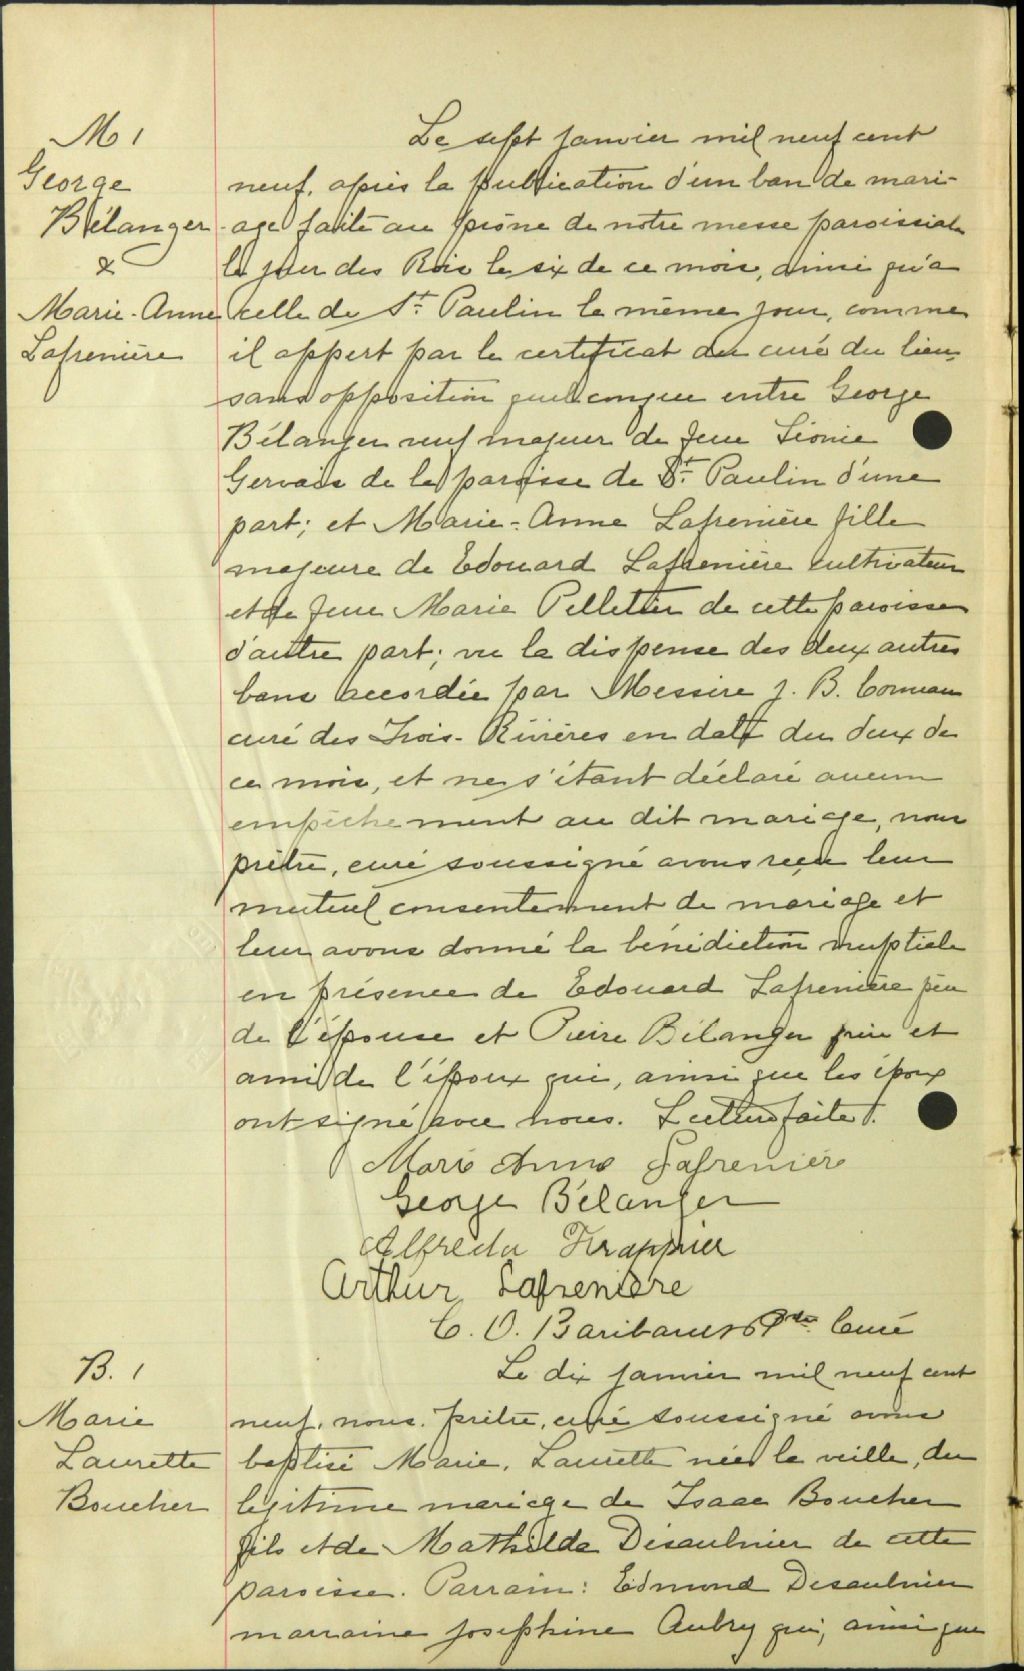 M 1
George
Bélanger
&
Marie-Anne
Lafrenière
Le sept janvier mil neuf cent
neuf, après la publication d'un ban de mari-
age faite au prône de notre messe paroissiale
le jour des Rois le six de ce mois, ainsi qu'a
celle de St. Paulin le même jour, comme
il appert par le certificat du curé du lieu,
sans opposition quelconque entre George
Bélanger veuf majeur de feue Léonie
Gervais de la paroisse de St. Paulin d'une
part; et Marie-Anne Lafrenière fille
majeure de Edouard Lafrenière cultivateur
et de feue Marie Pelletier de cette paroisse
d'autre part; vu la dispense des deux autres
bans accordée par Messire J. B. Comeau
curé des Trois-Rivières en date du deux de
ce mois, et ne s'étant déclaré aucun
empêchement au dit mariage, nous
prêtre, curé soussigné avons reçu leur
mutuel consentement de mariage et
leur avons donné la bénédiction nuptiale
en présence de Edouard Lafrenière père
de l'épouse et Pierre Bélanger frère et
ami de l'époux qui, ainsi que les époux
ont signé avec nous. Lecture faite.
Marie Anne Lafreniere
George Bélanger
Alfreda Frappier
Arthur Lafreniere
C. O. Baribeau Ptre. Curé
B. 1
Marie
Laurette
Boucher
Le dix janvier mil neuf cent
neuf, nous, prêtre, curé soussigné avons
baptisé Marie, Laurette née la veille, du
legitime mariage de Isaac Boucher
fils et de Mathilda Désaulnier de cette
paroisse. Parrain: Edmond Desaulnier
marraine Josephine Aubry qui, ainsi que